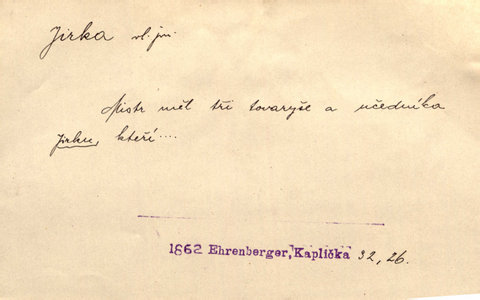 Jirka vl. jm.
Mistr měl tři tovaryše a učedníka
Jirku, kteří....
1862 Ehrenberger, Kaplička 32, 26.